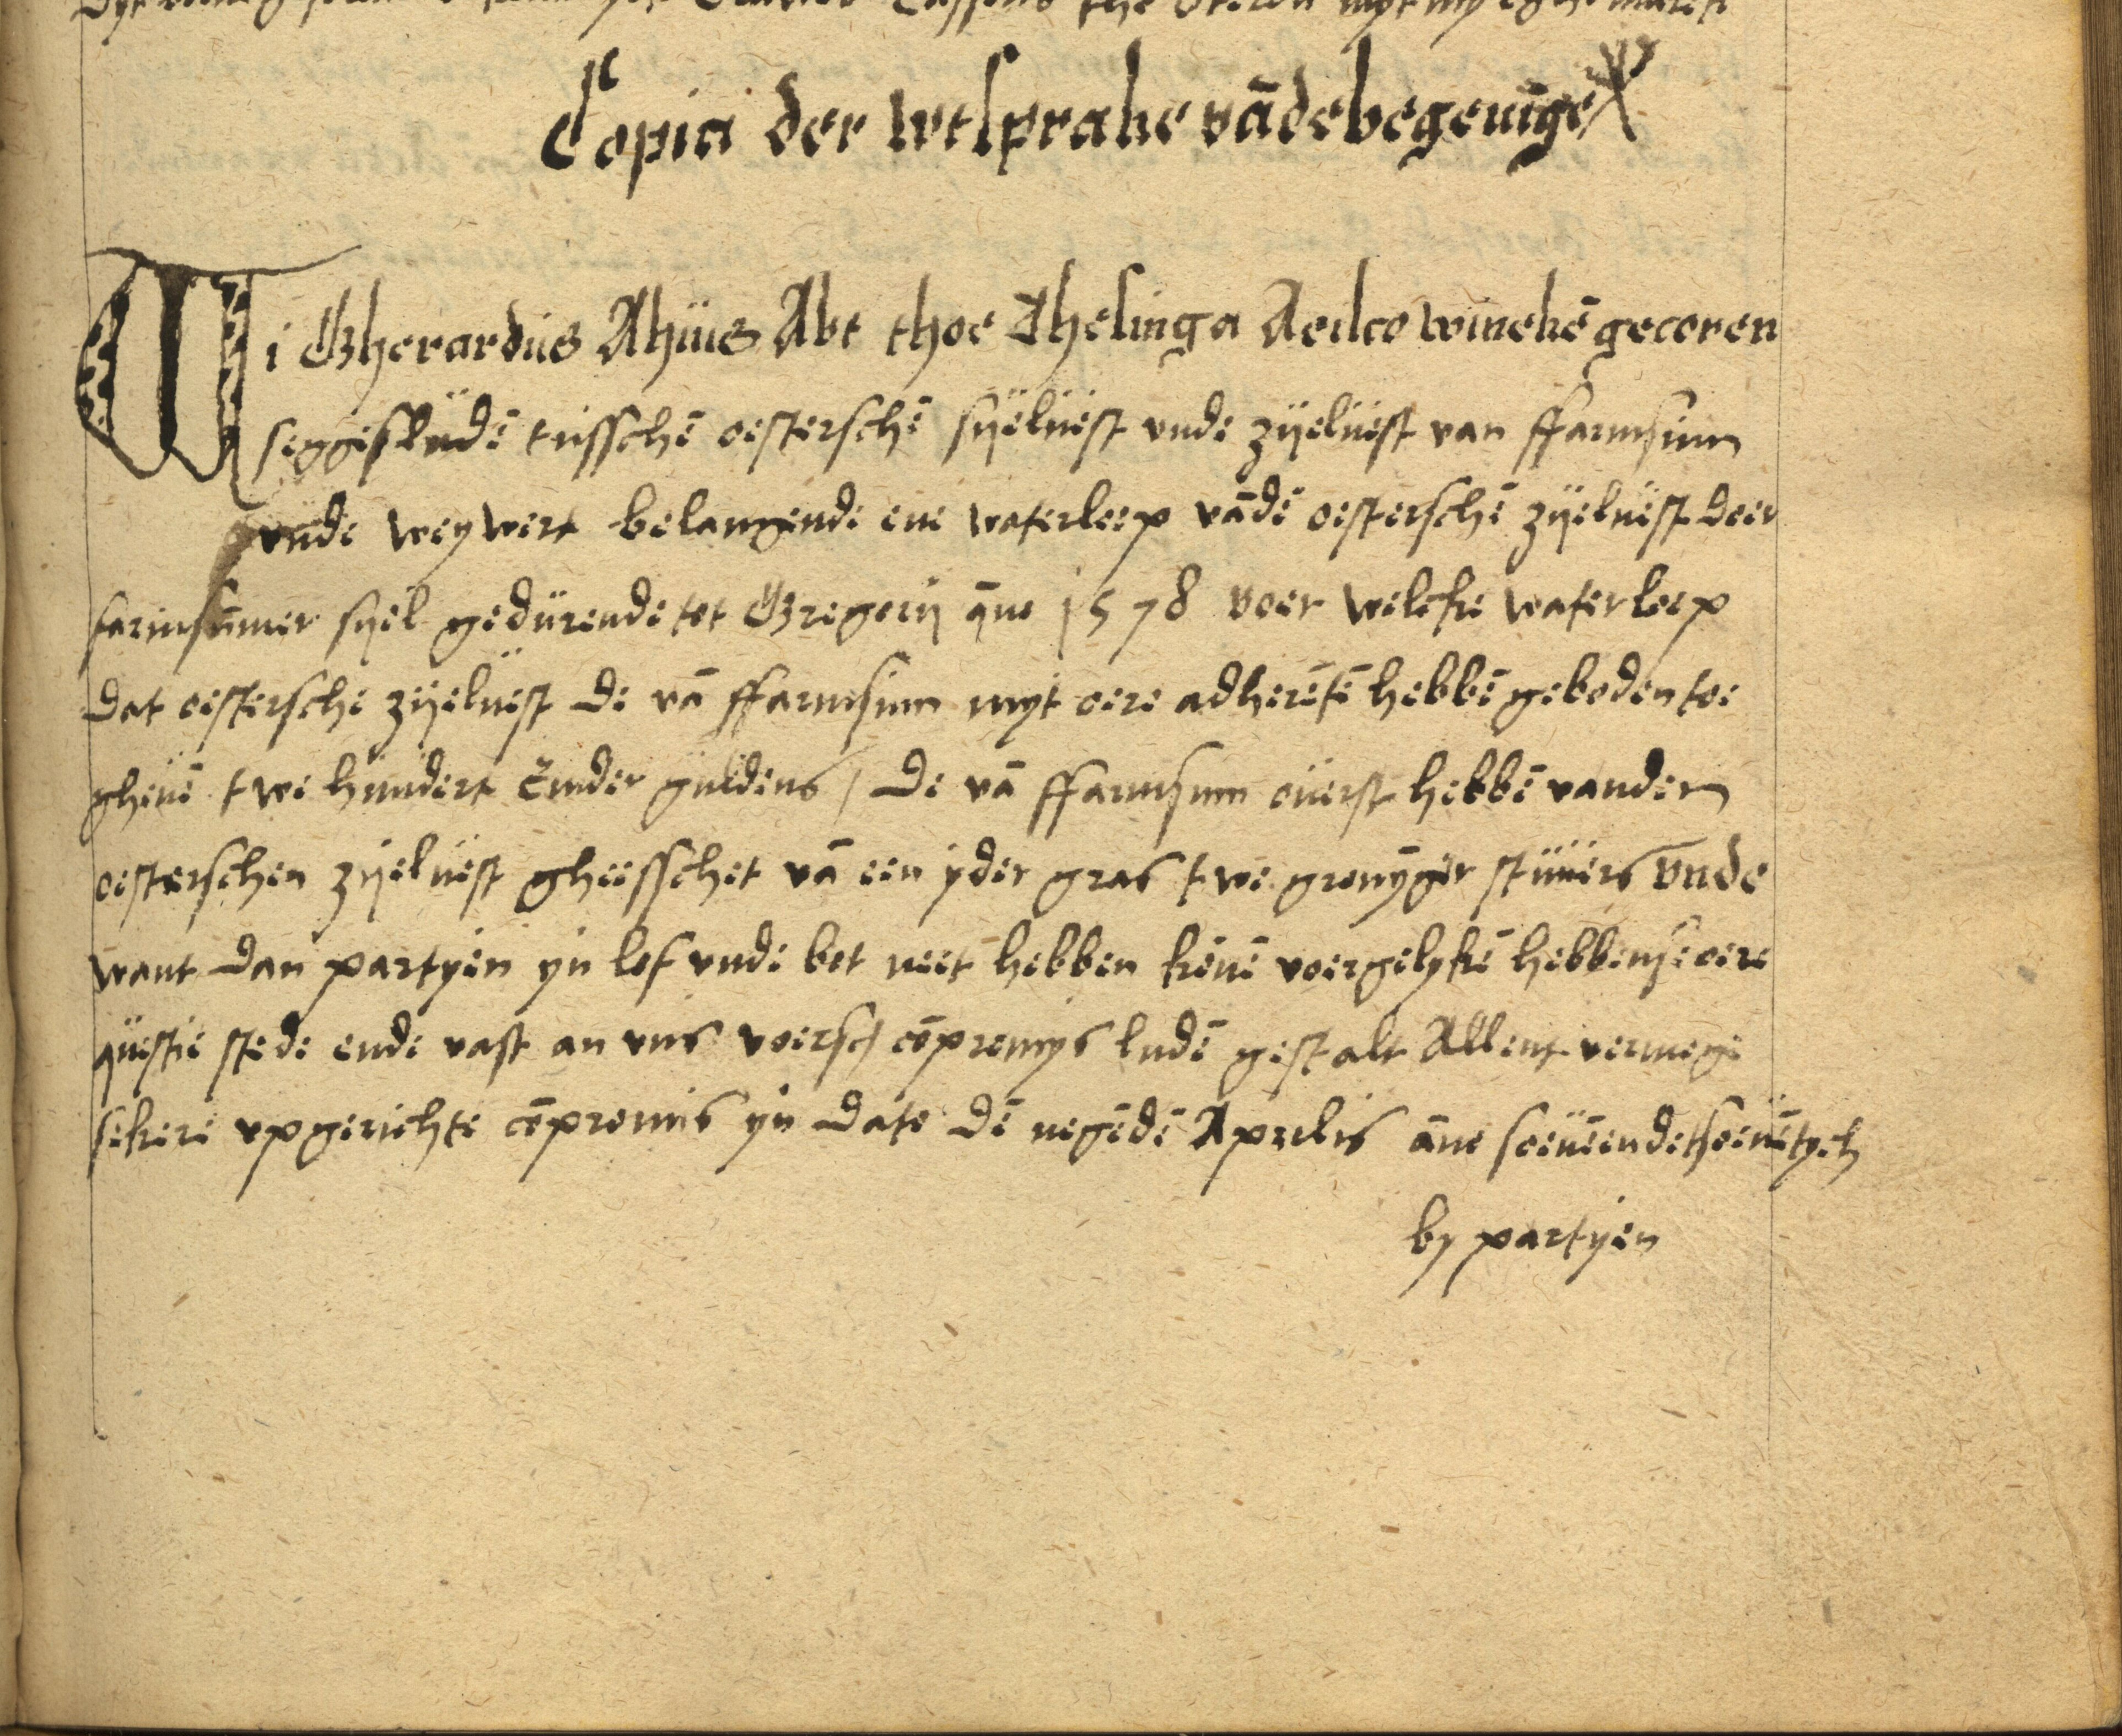 Copia der wtsprake vādebegeuīge
Wi Gherardus Ahüis Abt thoe Thelinga Aeilco wineke̅ gecoren
seggeslüde̅ tusschē oesterschē sijelüest vnde zijelüest van ffarmsum
vnde weywert belangende ene waterleep vāde̅ oesterschē zijelüest deer
farmsūmer sijel gedürende tot Gregorij āno 1578 voer welcke waterleep
dat oestersche zijelüest de vā ffarmsum myt oere adherētē hebbē geboden toe
gheuē twe hundert Emder guldens / de vā ffarmsum ouerst hebbē vanden
oesterschen zijelüest gheesschet vā een yder gras twe gronȳger stüuers vnde
want dan partyen yn lef vnde bot neet hebben köne̅ voergelykē hebbense oere
questie stede ende vast an vns voersch cōpromys ludē gestalt Allent vermoge
sekere vpgerichte cōpromis yn dato dē negēdē Aprilis āno soeuēendetsoeuētych
by partyen